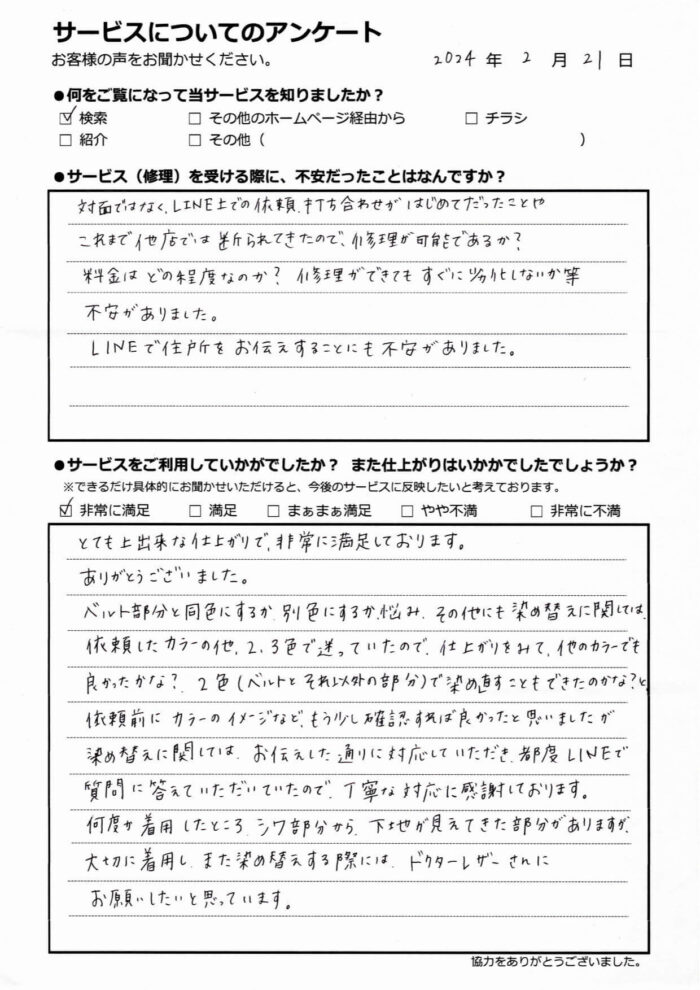 サービスについてのアンケート
お客様の声をお聞かせください。
2024 年 2 月 21 日
●何をご覧になって当サービスを知りましたか？
☑ 検索 □ その他のホームページ経由から □ チラシ
□ 紹介 □ その他（ ）
●サービス（修理）を受ける際に、不安だったことはなんですか？
対面ではなく、LINE上での依頼、打ち合わせがはじめてだったことや
これまで他店では断られてきたので、修理が可能であるか？
料金はどの程度なのか？ 修理ができてもすぐに劣化しないか等
不安がありました。
LINEで住所をお伝えすることにも不安がありました。
●サービスをご利用していかがでしたか？ また仕上がりはいかかでしたでしょうか？
※できるだけ具体的にお聞かせいただけると、今後のサービスに反映したいと考えております。
☑ 非常に満足 □ 満足 □ まぁまぁ満足 □ やや不満 □ 非常に不満
とても上出来な仕上がりで、非常に満足しております。
ありがとうございました。
ベルト部分と同色にするか、別色にするか、悩み、その他にも染め替えに関しては、
依頼したカラーの他、2、3色で迷っていたので、仕上がりをみて、他のカラーでも
良かったかな？、2色（ベルトとそれ以外の部分）で染め直すこともできたのかな？と、
依頼前にカラーのイメージなど、もう少し確認すれば良かったと思いましたが
染め替えに関しては、お伝えした通りに対応していただき、都度LINEで
質問に答えていただいていたので、丁寧な対応に感謝しております。
何度か着用したところ、シワ部分から、下地が見えてきた部分がありますが、
大切に着用し、また染め替えする際には、ドクターレザーさんに
お願いしたいと思っています。
協力をありがとうございました。